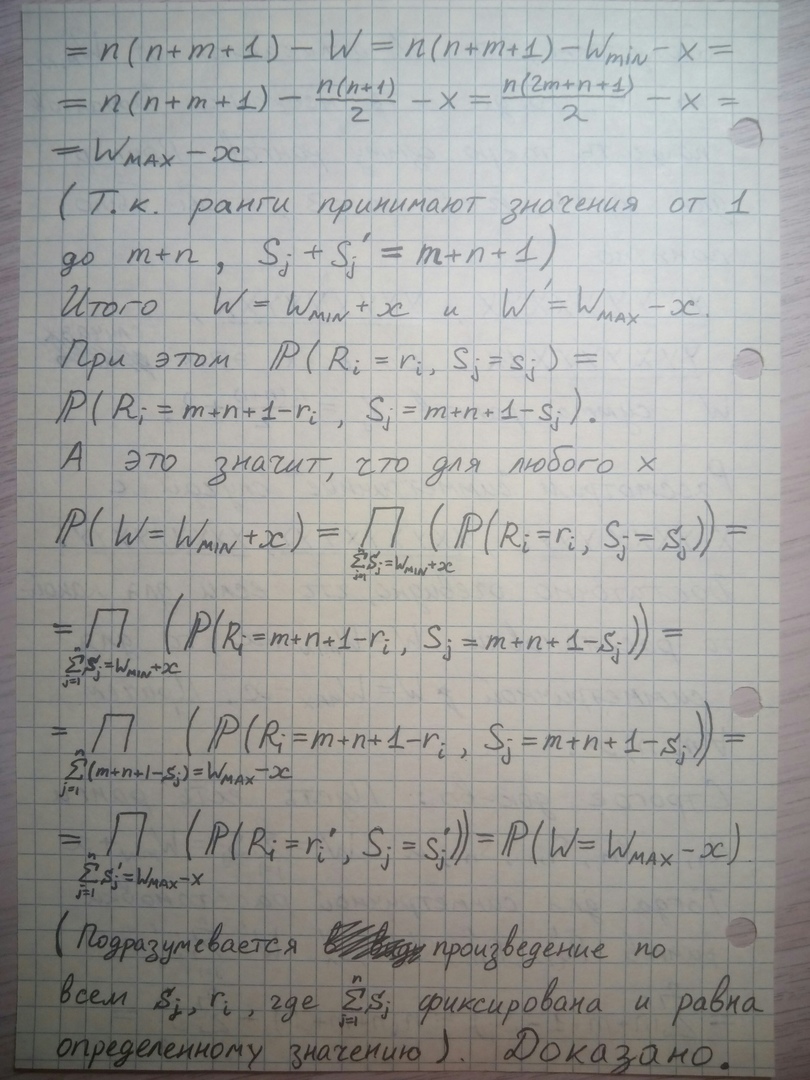 = n(n+m+1) − W = n(n+m+1) − Wmin − x =
= n(n+m+1) − n(n+1)/2 − x = n(2m+n+1)/2 − x =
= WMAX − x
(Т.к. ранги принимают значения от 1
до m+n, Sj + Sj' = m+n+1)
Итого W = WMIN + x и W' = WMAX − x.
При этом ℙ(Ri = ri, Sj = sj) =
ℙ(Ri = m+n+1−ri, Sj = m+n+1−sj).
А это значит, что для любого x
ℙ(W = WMIN + x) = ∏ (ℙ(Ri = ri, Sj = sj)) =
∑ⁿj=1 sj = WMIN + x
= ∏ (ℙ(Ri = m+n+1−ri, Sj = m+n+1−sj)) =
∑ⁿj=1 sj = WMIN + x
= ∏ (ℙ(Ri = m+n+1−ri, Sj = m+n+1−sj)) =
∑ⁿj=1 (m+n+1−sj) = WMAX − x
= ∏ (ℙ(Ri = ri', Sj = sj')) = ℙ(W = WMAX − x).
∑ⁿj=1 sj' = WMAX − x
(Подразумевается произведение по
всем sj, ri, где ∑ⁿj=1 sj фиксирована и равна
определенному значению). Доказано.